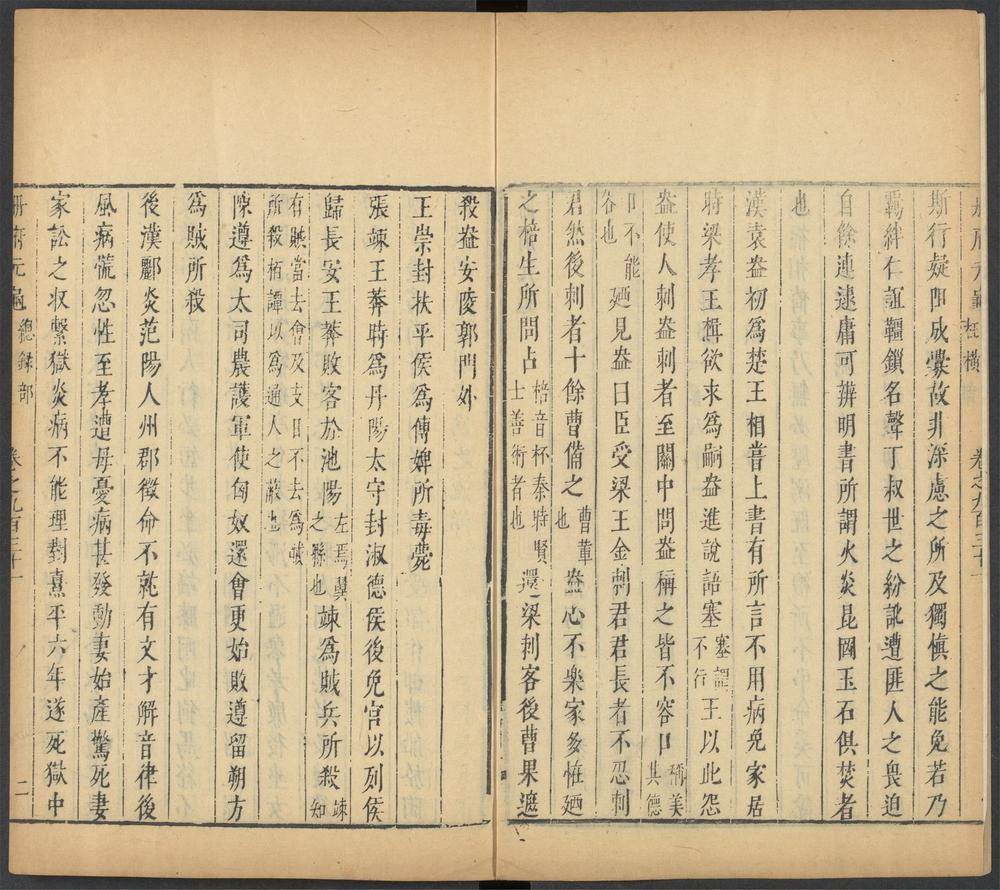 冊府元龜枉橫卷之九百三十一
斯行疑阻成釁故非深慮之所及獨慎之能免若乃
羈絆仁誼韁鎖名聲丁叔世之紛訛遭匪人之畏迫
自餘連逮庸可辨明書所謂火炎昆岡玉石俱焚者
也
漢袁盎初爲楚王相嘗上書有所言不用病免家居
時梁孝王楫欲求爲嗣盎進說語塞塞謂不行王以此怨
盎使人刺盎刺者至關中問盎稱之皆不容口稱美其德
口不能名也廼見盎曰臣受梁王金刺君君長者不忍刺
君然後刺者十餘曹備之曹輩也盎心不樂家多恠廼
之棓生所問占棓音杯秦時賢士善術者也還梁刺客後曹果遮
殺盎安陵郭門外
王崇封扶平侯爲傅婢所毒薨
張竦王莽時爲丹陽太守封淑德侯後免官以列侯
歸長安王莽敗客於池陽左馮翼之縣也竦爲賊兵所殺竦知
有賊當去會及支日不去爲賊所殺栢譚以爲通人之蔽也
陳遵爲太司農護軍使匈奴還會更始敗遵留朔方
爲賊所殺
後漢酈炎范陽人州郡徵命不就有文才解音律後
風病慌忽性至孝遭母憂病甚發動妻始產驚死妻
家訟之収繫獄炎病不能理對熹平六年遂死獄中
冊府元龜總錄部卷之九百三十一二